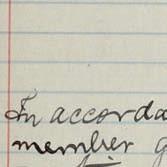 In accorda
member g